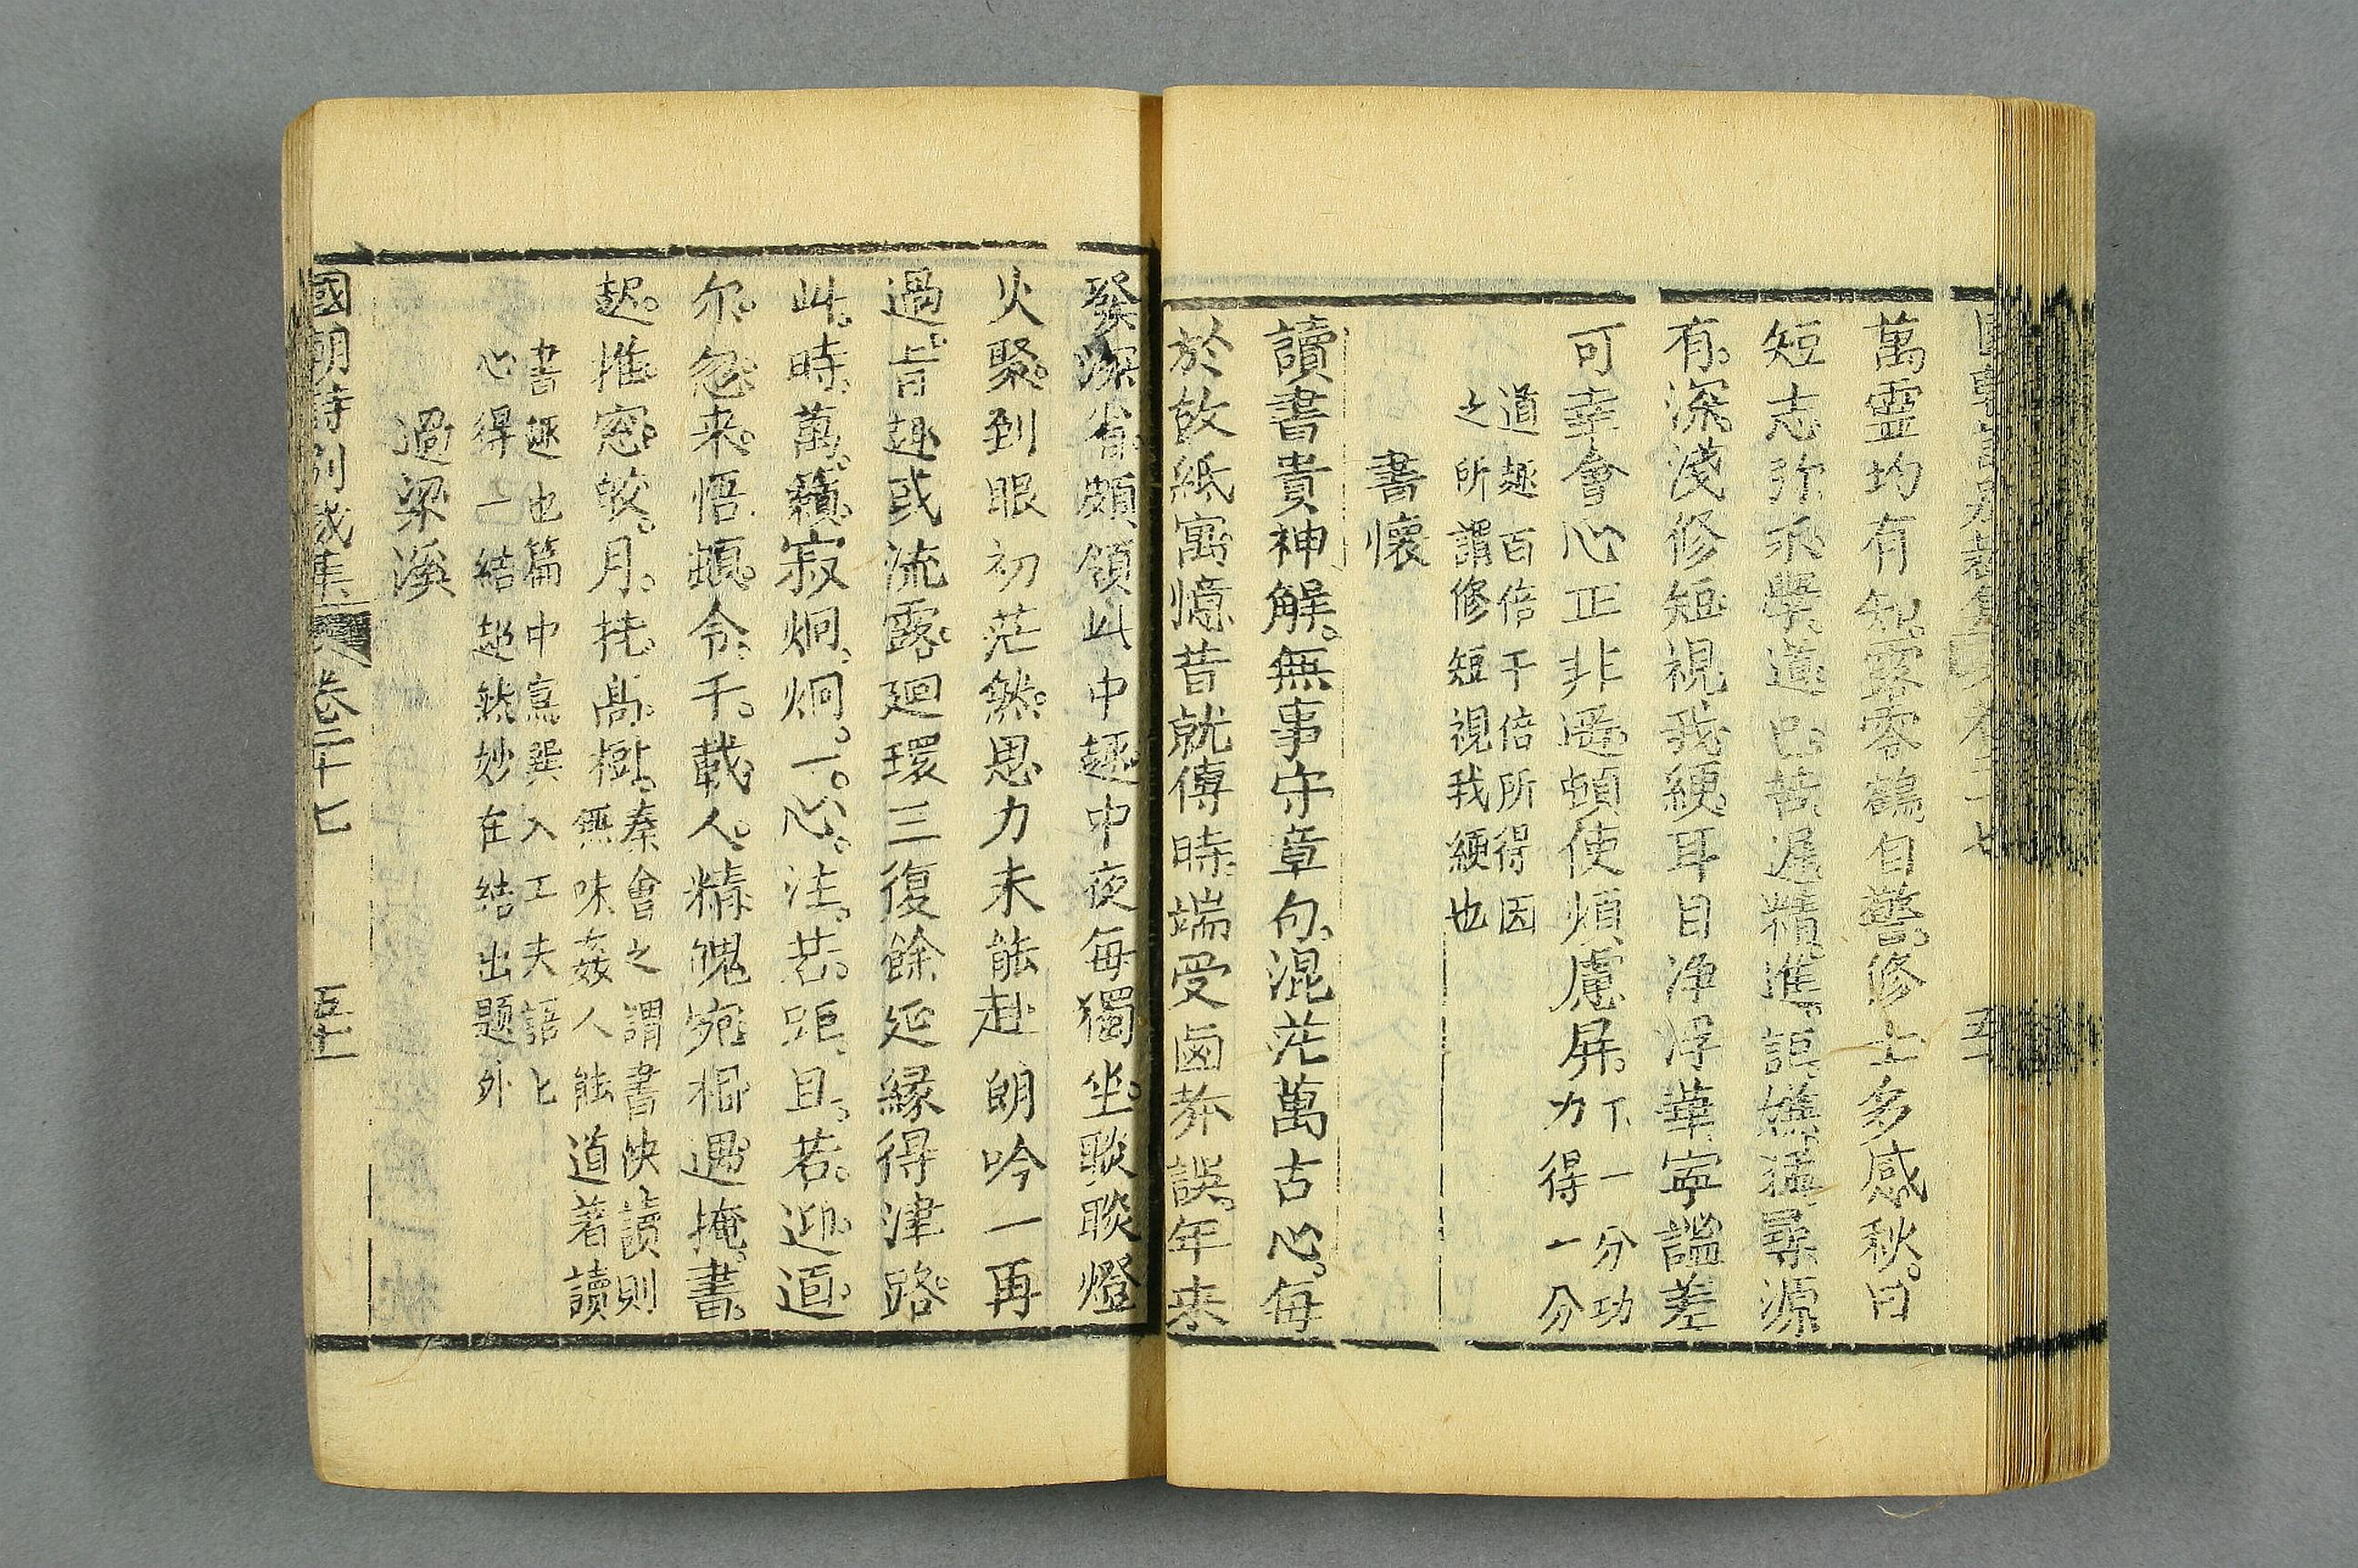 萬靈均有知露零鶴自警修士多感秋日
短志弥承學道已苦遲精進詎嫌猛尋源
有深淺修短視我綆耳目净浮華寧謚差
可幸會心正非遥頓使煩慮屏下一分功
力得一分
道趣百倍千倍所得因
之所謂修短視我綆也
書懷
讀書貴神解無事守章句混茫萬古心每
於故紙寓憶昔就傅時端受鹵莽誤年来
發深省頗領此中趣中夜每獨坐睒睒燈
火聚到眼初茫然思力未能赴朗吟一再
過旨趣或流露廻環三復餘延緣得津路
此時萬籟寂炯炯一心注若距且若迎逌
尔忽来悟頓令千載人精魄宛相遇掩書
起推窓皎月挂高樹秦會之謂書快讀則
無味姦人能道着讀
書趣也篇中寫巽入工夫語匕
心得一結超然妙在結出題外
過梁溪
國朝詩別裁集 卷二十七 五十一